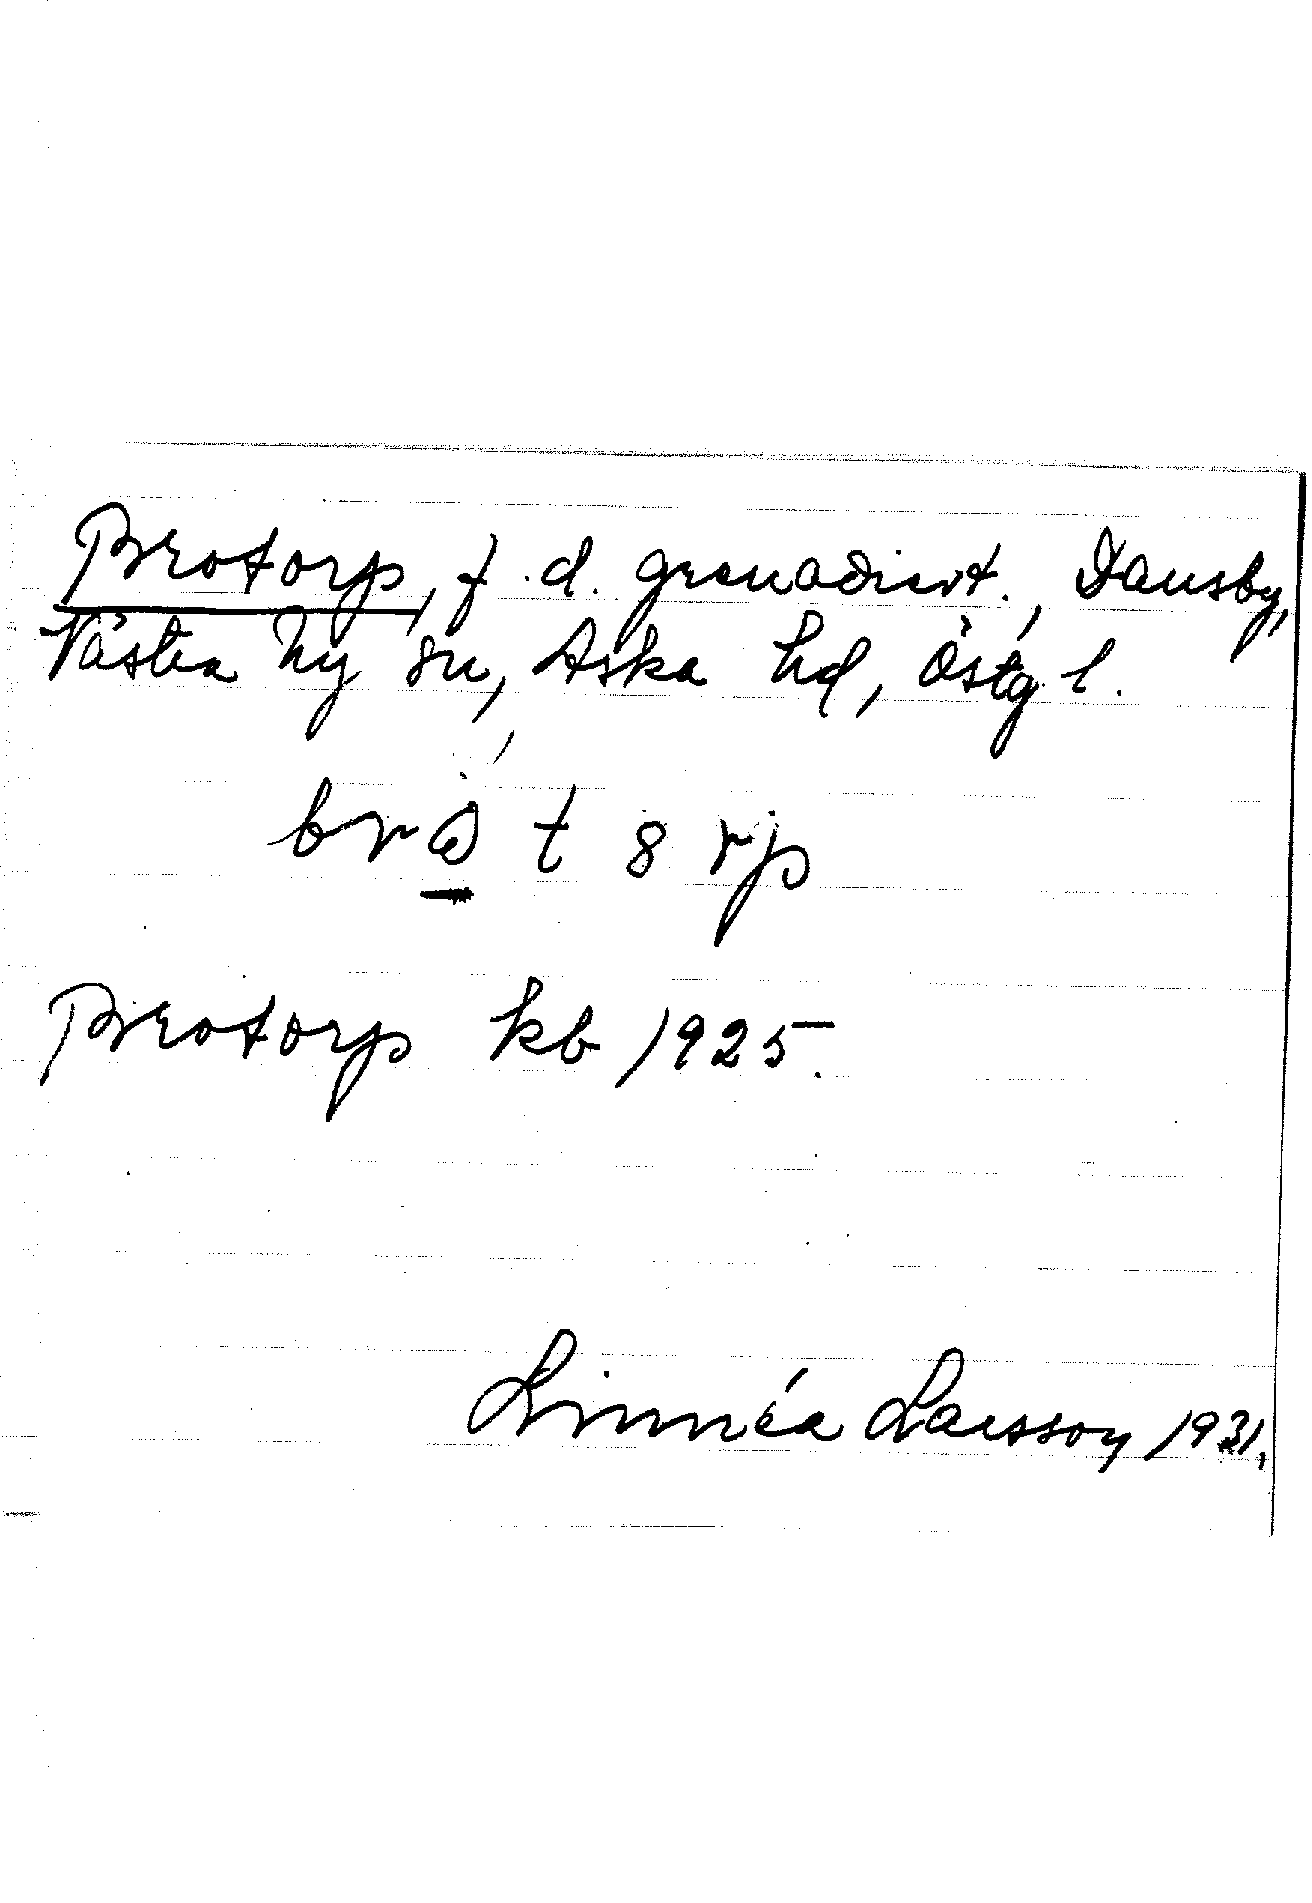 Brotorp, f.d. grenadiert., Dansby,
Västra Ny sn, Aska hd, Östg. l.
t 8 rp
Brotorp kb 1925.
Linnéa Larsson 1931.